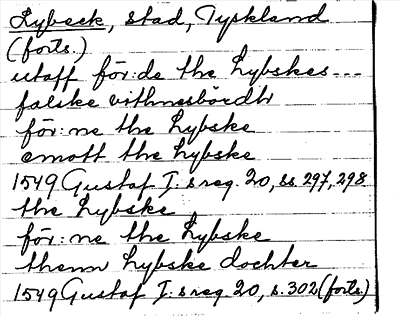 Lybeck, stad, Tyskland
(forts.)
utaff för:de the Lybskes ---
falske vithnesbördh
för:ne the Lybske
emott the Lybske
1549 Gustaf I:s reg. 20, ss. 297, 298
the Lybske
för:ne the Lybske
thenn Lybske dochter
1549 Gustaf I:s reg. 20, s. 302 (forts.)